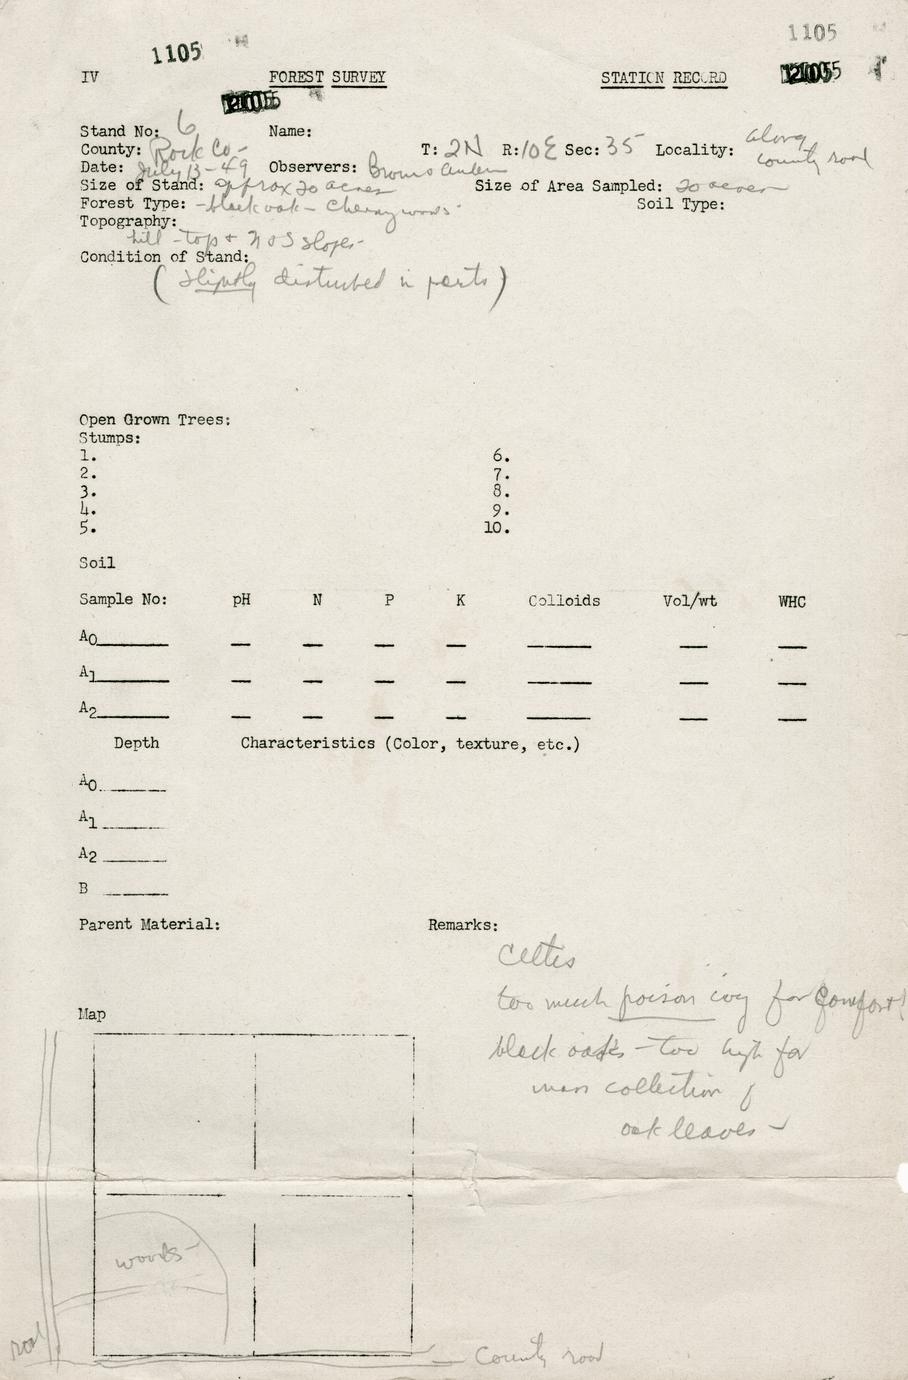 1105
1105
IV FOREST SURVEY STATION RECORD
Stand No: 6 Name:
County: Rock Co- T: 2N R: 10E Sec: 35 Locality: along county road
Date: July 13-49 Observers: Brown &
Size of Stand: approx 20 acres Size of Area Sampled: 20 acres
Forest Type: - black oak - Cherry woods Soil Type:
Topography:
hill - top + N & S slopes-
Condition of Stand:
(Slightly disturbed in parts)
Open Grown Trees:
Stumps:
1. 6.
2. 7.
3. 8.
4. 9.
5. 10.
Soil
Sample No: pH N P K Colloids Vol/wt WHC
A0
A1
A2
Depth Characteristics (Color, texture, etc.)
A0
A1
A2
B
Parent Material: Remarks:
Celtis
too much poison ivy for comfort!
Map
black oaks - too high for
mass collection of
oak leaves -
woods-
road
County road